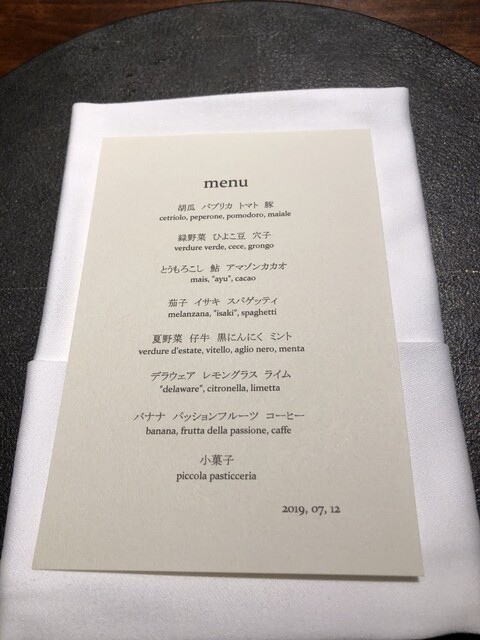 menu
胡瓜 パプリカ トマト 豚
cetriolo, peperone, pomodoro, maiale
緑野菜 ひよこ豆 穴子
verdure verde, cece, grongo
とうもろこし 鮎 アマゾンカカオ
mais, "ayu", cacao
茄子 イサキ スパゲッティ
melanzana, "isaki", spaghetti
夏野菜 仔牛 黒にんにく ミント
verdure d'estate, vitello, aglio nero, menta
デラウェア レモングラス ライム
"delaware", citronella, limetta
バナナ パッションフルーツ コーヒー
banana, frutta della passione, caffe
小菓子
piccola pasticceria
2019, 07, 12